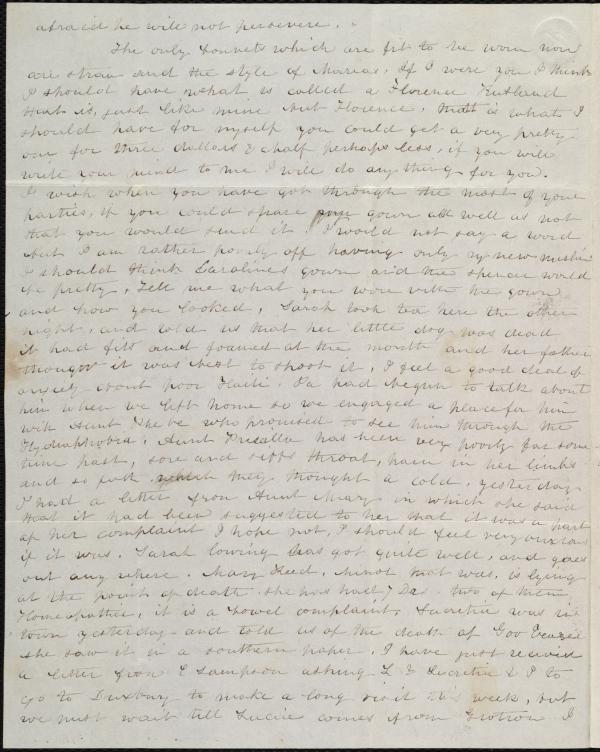 afraid he will not persevere.
The only bonnets which are fit to be worn now
are straw and the style of Marias. If I were you I think
I should have what is called a Florence Rutland
that is, just like mine but Florence, that is what I
should have for myself you could get a very pretty
one for three dollars & a half perhaps less, if you will
write your mind to me I will do anything for you.
I wish when you have got through the most of your
parties, if you could spare your gown as well as not
that you would send it. I would not say a word
but I am rather poorly off having only my new muslin
I should think Caroline's gown and the spencer would
be pretty, Tell me what you wore with the gown
and how you looked, Sarah took tea here the other
night, and told us that her little dog was dead
it had fits and foamed at the mouth and her father
thought it was best to shoot it, I feel a good deal of
anxiety about poor Haiti. Pa had begun to talk about
him when we left home so we engaged a place for him
with Aunt Phebe who promised to see him through the
Hydrophobia, Aunt Priscilla has been very poorly for some
time past, sore and stiff throat, pain in her limbs
and so forth which they thought a cold, yesterday
I had a letter from Aunt Mary in which she said
that it had been suggested to her that it was a part
of her complaint I hope not, I should feel very anxious
if it was. Sarah Loring has got quite well, and goes
out any where. Mary Reed, Minot that was, is lying
at the point of death she has had 7 Drs two of them
Homeopathic, it is a bowel complaint, Lucretia was in
town yesterday and told us of the death of Geo
she saw it in a southern paper. I have just received
a letter from E Sampson asking L & Lucretia & I to
go to Duxbury to make a long visit this week, but
we must wait till Lucia comes from Groton I